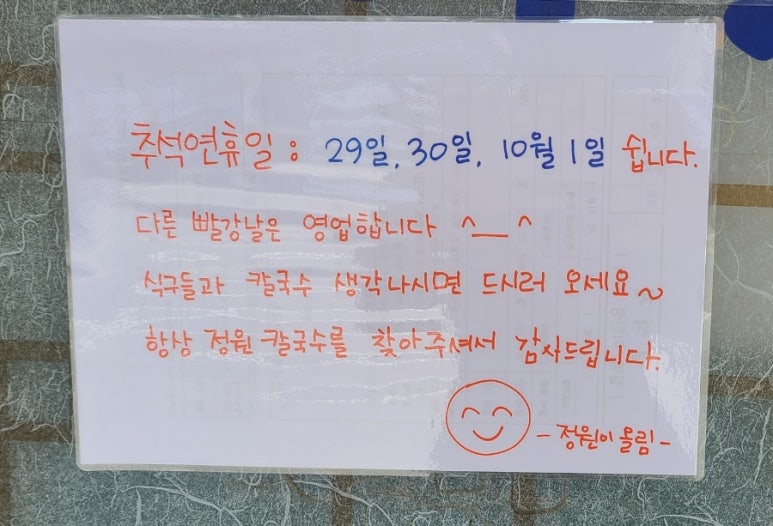 추석연휴일 : 29일, 30일, 10월 1일 쉽니다.
다른 빨강날은 영업합니다 ^__^
식구들과 칼국수 생각나시면 드시러 오세요~
항상 정원 칼국수를 찾아주셔서 감사드립니다.
- 정원이 올림 -